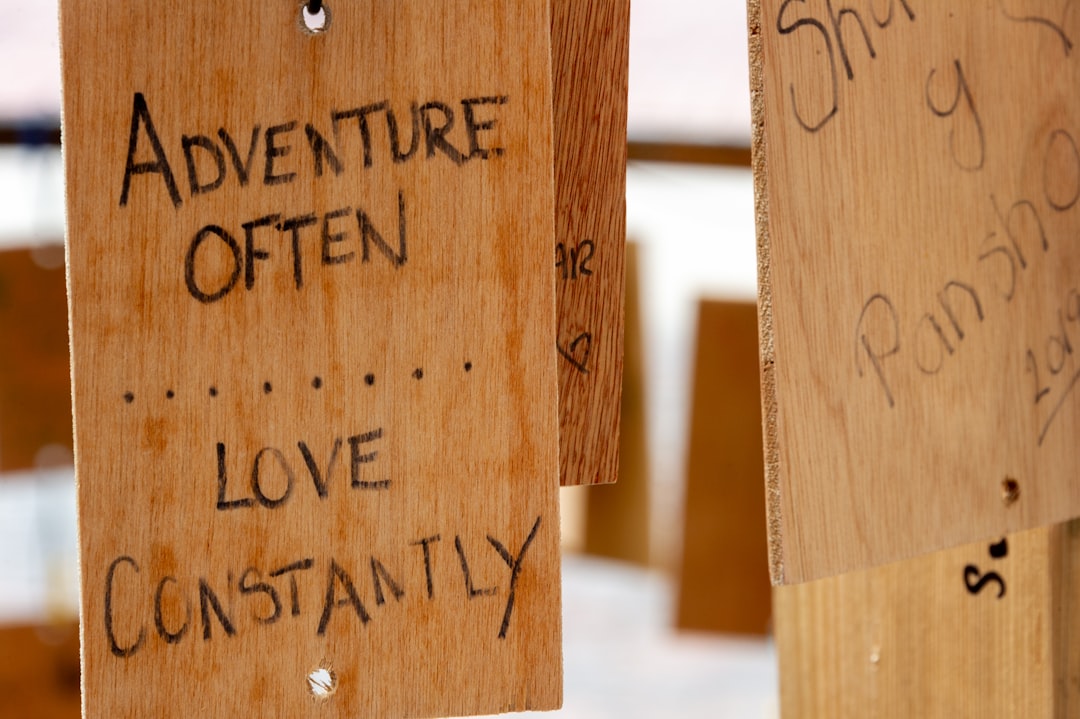 ADVENTURE
OFTEN
........
LOVE
CONSTANTLY
AR
y
Pansho